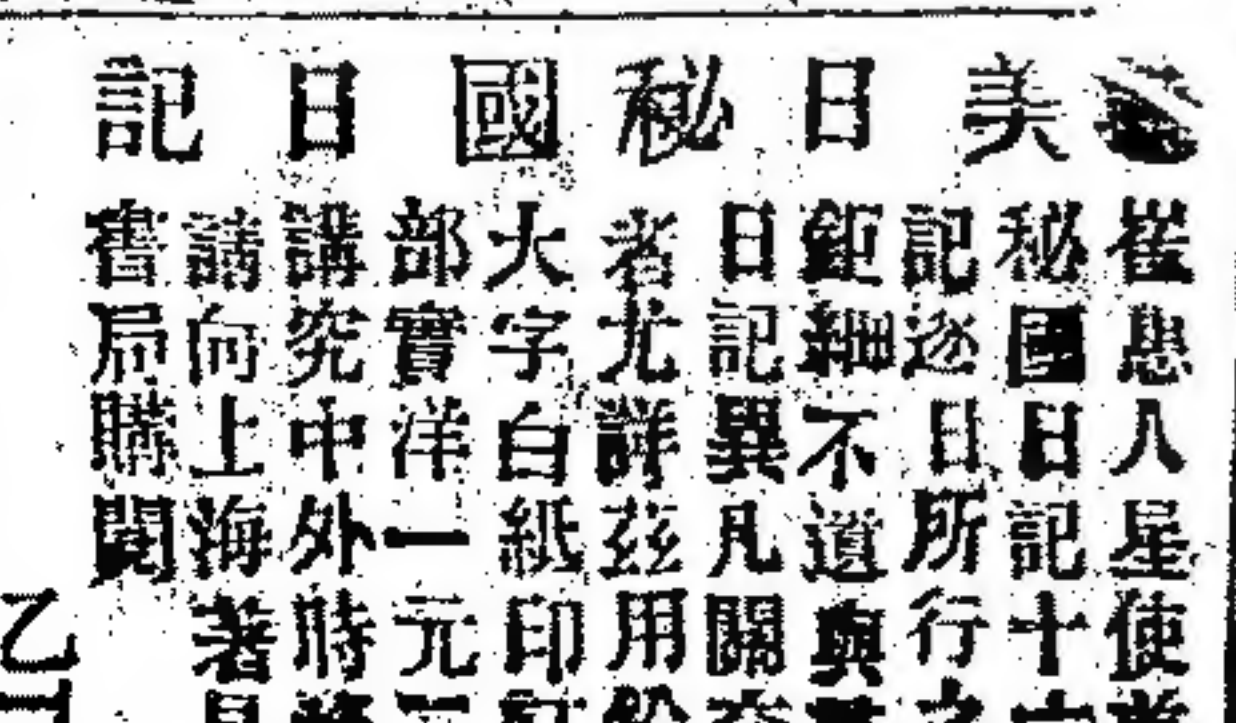 美日秘國日記
崔惠人星使
秘國日記十
記逐日所行
鉅細不遺與
日記異凡關
者尤詳茲用
大字白紙印
部實洋一元
講究中外時
請向上海著
書局購閱
乙